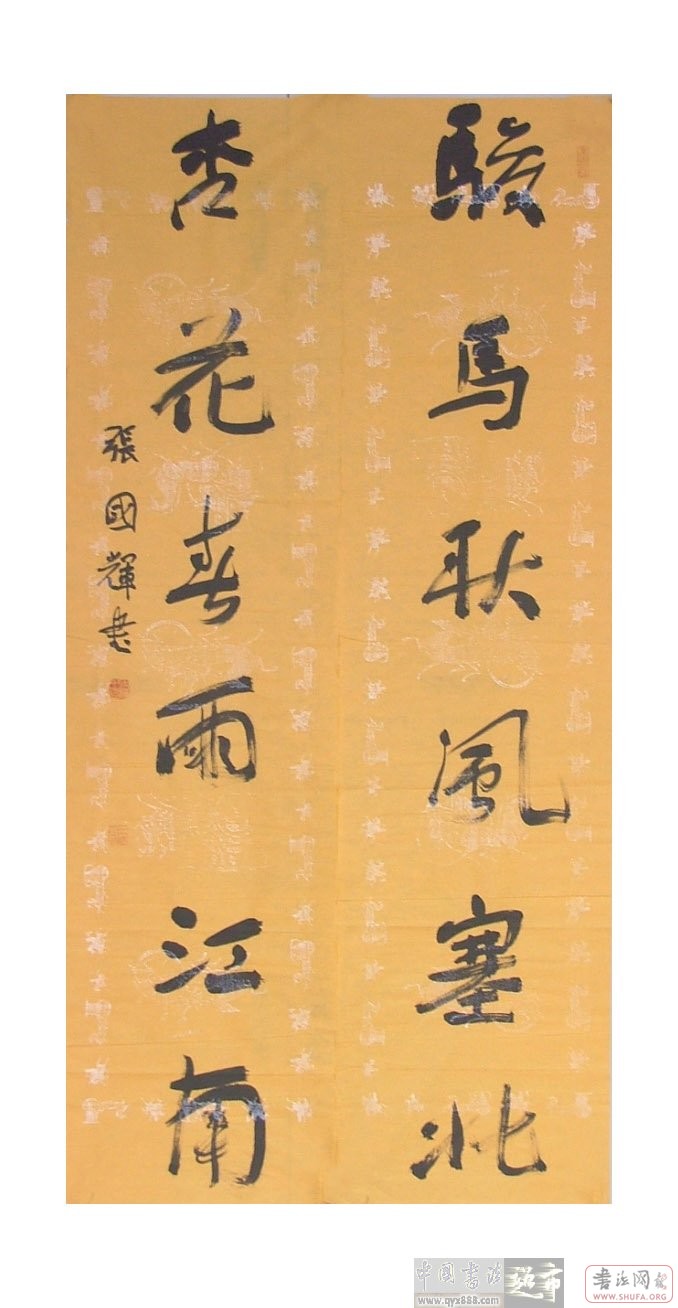 駿馬秋風塞北
杏花春雨江南
張國輝書
中国书法超市
www.qyx888.com
书法网
WWW.SHUFA.ORG